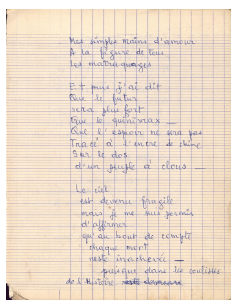 Mes simples mains d'amour
A la figure de tous
Les matraquages

Et puis j'ai dit
Que le futur
sera plus fort
Que le
Que l'espoir ne sera pas
Tracé à l'encre de chine
Sur le dos
d'un peuple à clous

Le ciel
est devenu fragile
mais je me suis permis
d'affirmer
qu'au bout de compte
chaque mort
reste inachevée —
puisque dans les coulisses
de l'Histoire